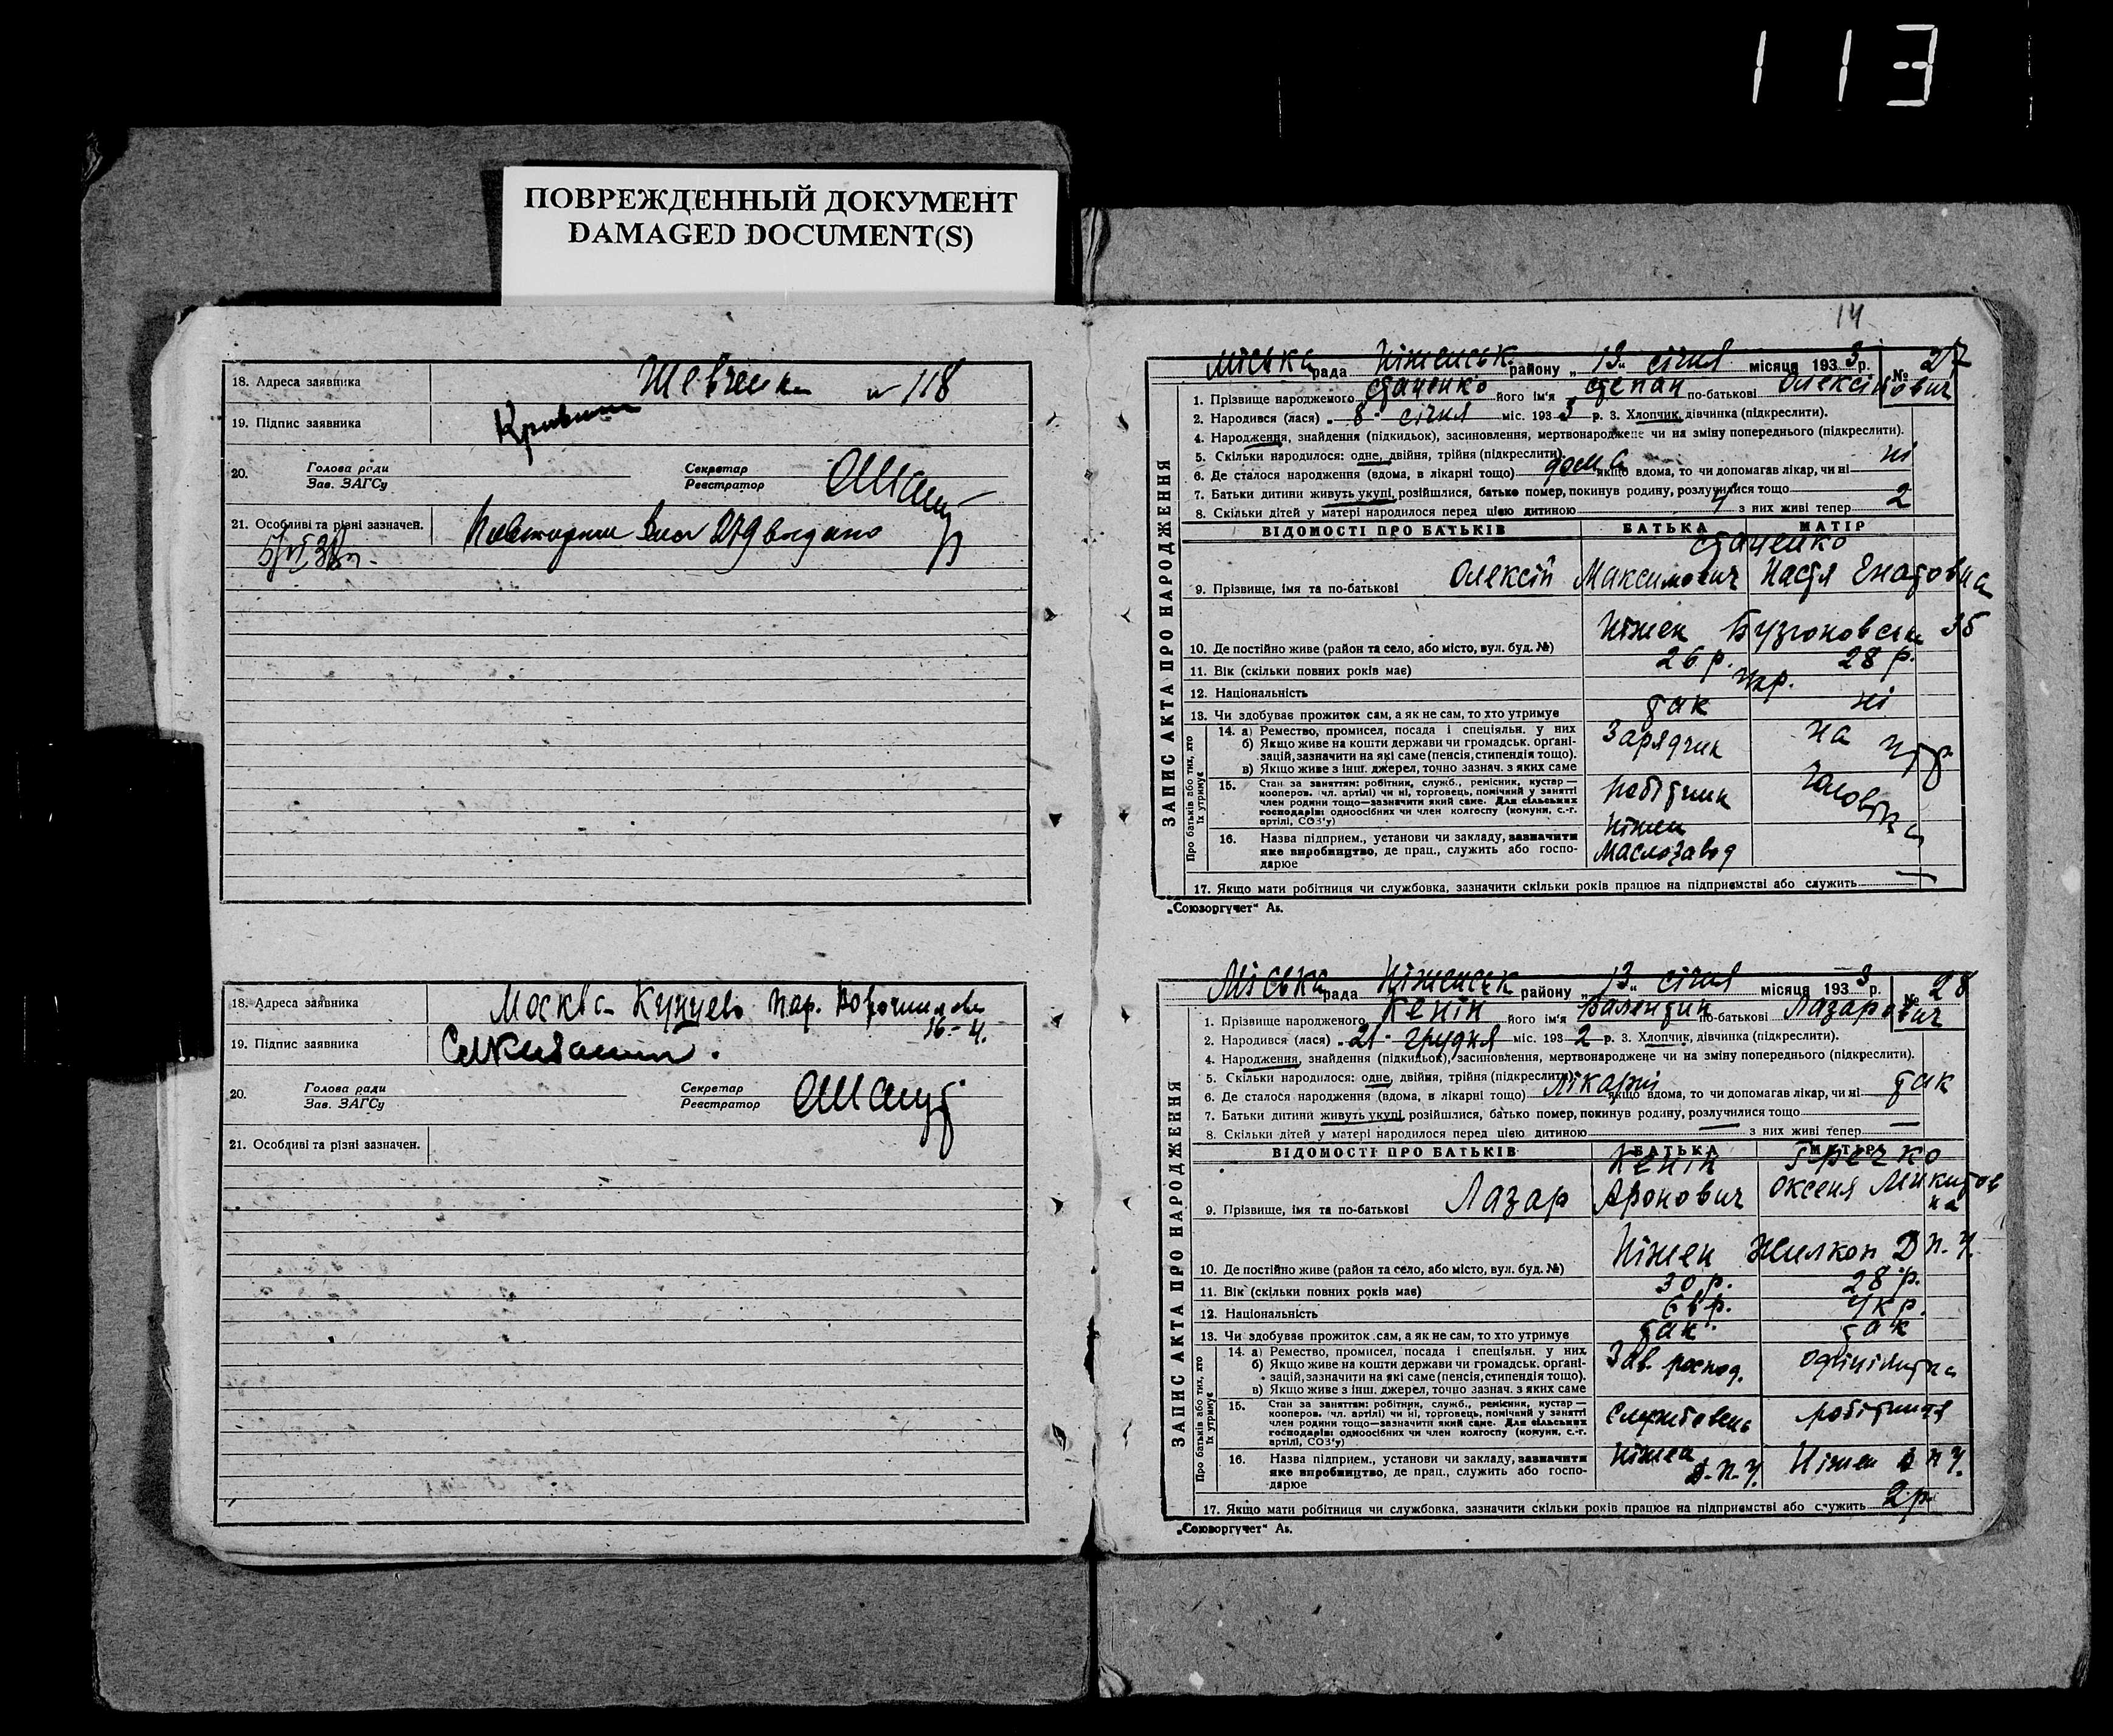 113
ПОВРЕЖДЕННЫЙ ДОКУМЕНТ
DAMAGED DOCUMENT(S)
18. Адреса заявника Шевченка № 118
19. Підпис заявника
20. Голова ради Секретар
Зав. ЗАГСу Реєстратор
21. Особливі та різні зазначен. 279 видано
18. Адреса заявника Москва Кунцево пар.
16-4.
19. Підпис заявника
20. Голова ради Секретар
Зав. ЗАГСу Реєстратор
21. Особливі та різні зазначен.
14
ЗАПИС АКТА ПРО НАРОДЖЕННЯ
Міська рада Ніженськ району „13„ січня місяця 1933 р. № 27
1. Прізвище народженого Стаценко його ім'я Степан по-батькові Олексійович
2. Народився (лася) „8" січня міс. 1933 р. 3. Хлопчик, дівчинка (підкреслити).
4. Народження, знайдення (підкидьок), засиновлення, мертвонароджене чи на зміну попереднього (підкреслити).
5. Скільки народилося: одне, двійня, трійня (підкреслити).
6. Де сталося народження (вдома, в лікарні тощо) дома якщо вдома, то чи допомагав лікар, чи ні ні
7. Батьки дитини живуть укупі, розійшлися, батько помер, покинув родину, розлучилися тощо
8. Скільки дітей у матері народилося перед цією дитиною 4 з них живі тепер 2
ВІДОМОСТІ ПРО БАТЬКІВ БАТЬКА МАТІР
Стаценко
9. Прізвище, імя та по-батькові Олексій Максимович Настя Гнатовна
10. Де постійно живе (район та село, або місто, вул. буд. №) Ніжен 35
11. Вік (скільки повних років має) 26 р. 28 р.
12. Національність Укр.
13. Чи здобуває прожиток сам, а як не сам, то хто утримує так ні
Про батьків або тих, хто їх утримує
14. а) Ремество, промисел, посада і спеціяльн. у них Зарядчик на утр
б) Якщо живе на кошти держави чи громадськ. орґані-
зацій, зазначити на які саме (пенсія, стипендія тощо).
в) Якщо живе з інш. джерел, точно зазнач. з яких саме
15. Стан за заняттям: робітник, служб., ремісник, кустар — робітник чоловіка
кооперов. (чл. артілі) чи ні, торговець, помічний у занятті
член родини тощо—зазначити який саме. Для сільських
господарів: одноосібних чи член колгоспу (комуни, с.-г.
артілі, СОЗ'у)
16. Назва підприєм., установи чи закладу, зазначити Ніжен
яке виробництво, де прац., служить або госпо- Маслозавод
дарює
17. Якщо мати робітниця чи службовка, зазначити скільки років працює на підприємстві або служить
„Союзоргучет" Ав.
ЗАПИС АКТА ПРО НАРОДЖЕННЯ
Міська рада Ніженськ району „13„ січня місяця 1933 р. № 28
1. Прізвище народженого Кенін його ім'я Валентин по-батькові Лазарович
2. Народився (лася) „21" грудня міс. 1932 р. 3. Хлопчик, дівчинка (підкреслити).
4. Народження, знайдення (підкидьок), засиновлення, мертвонароджене чи на зміну попереднього (підкреслити).
5. Скільки народилося: одне, двійня, трійня (підкреслити).
6. Де сталося народження (вдома, в лікарні тощо) лікарні якщо вдома, то чи допомагав лікар, чи ні так
7. Батьки дитини живуть укупі, розійшлися, батько помер, покинув родину, розлучилися тощо
8. Скільки дітей у матері народилося перед цією дитиною — з них живі тепер —
ВІДОМОСТІ ПРО БАТЬКІВ БАТЬКА МАТІР
Кенін Гречко
9. Прізвище, імя та по-батькові Лазар Аронович Оксеня Микитовна
10. Де постійно живе (район та село, або місто, вул. буд. №) Ніжен Жилкоп Д.П.У.
11. Вік (скільки повних років має) 30 р. 28 р.
12. Національність євр. укр.
13. Чи здобуває прожиток сам, а як не сам, то хто утримує так так
Про батьків або тих, хто їх утримує
14. а) Ремество, промисел, посада і спеціяльн. у них Зав. роспод. офіціянтка
б) Якщо живе на кошти держави чи громадськ. орґані-
зацій, зазначити на які саме (пенсія, стипендія тощо).
в) Якщо живе з інш. джерел, точно зазнач. з яких саме
15. Стан за заняттям: робітник, служб., ремісник, кустар — службовець робітниця
кооперов. (чл. артілі) чи ні, торговець, помічний у занятті
член родини тощо—зазначити який саме. Для сільських
господарів: одноосібних чи член колгоспу (комуни, с.-г.
артілі, СОЗ'у)
16. Назва підприєм., установи чи закладу, зазначити Ніжен Ніжен Д.П.У.
яке виробництво, де прац., служить або госпо- Д.П.У.
дарює
17. Якщо мати робітниця чи службовка, зазначити скільки років працює на підприємстві або служить 2 р.
„Союзоргучет" Ав.